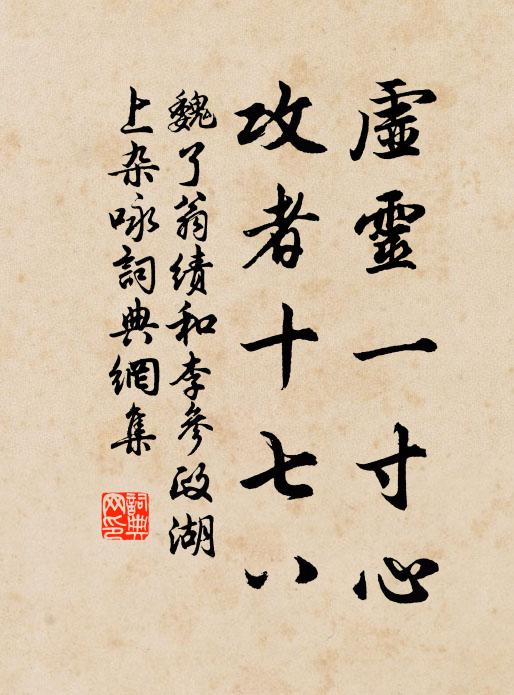 虛靈一寸心
攻者十七八
魏了翁績和李參政湖
上杂咏詞典網集
詞典
网印